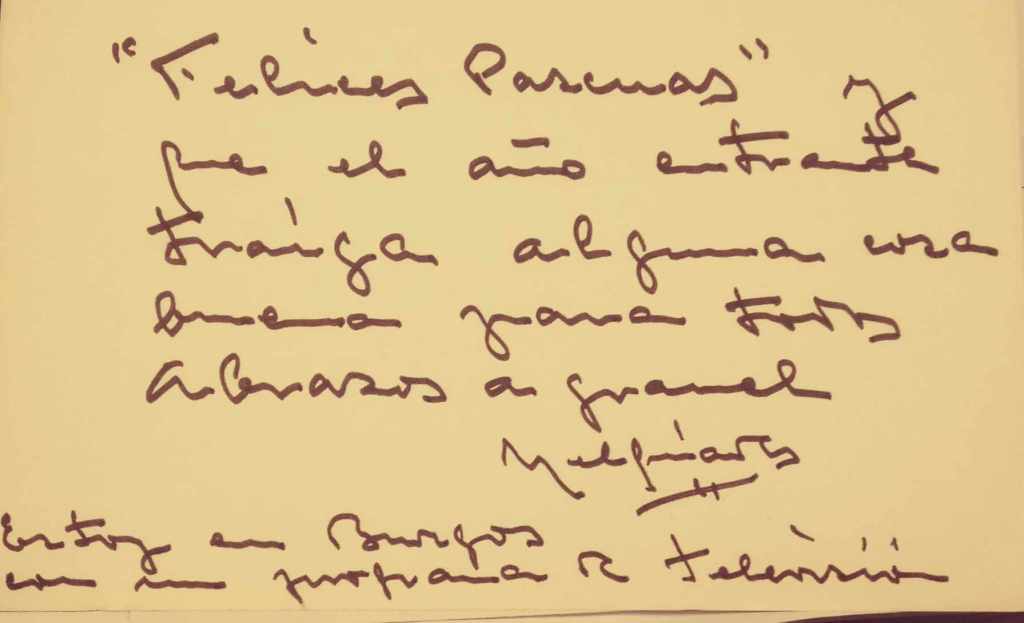 "Felices Pascuas" y
que el año entrante
traiga alguna cosa
buena para todos
Abrazos a granel
Estoy en Burgos
con un programa de televisión